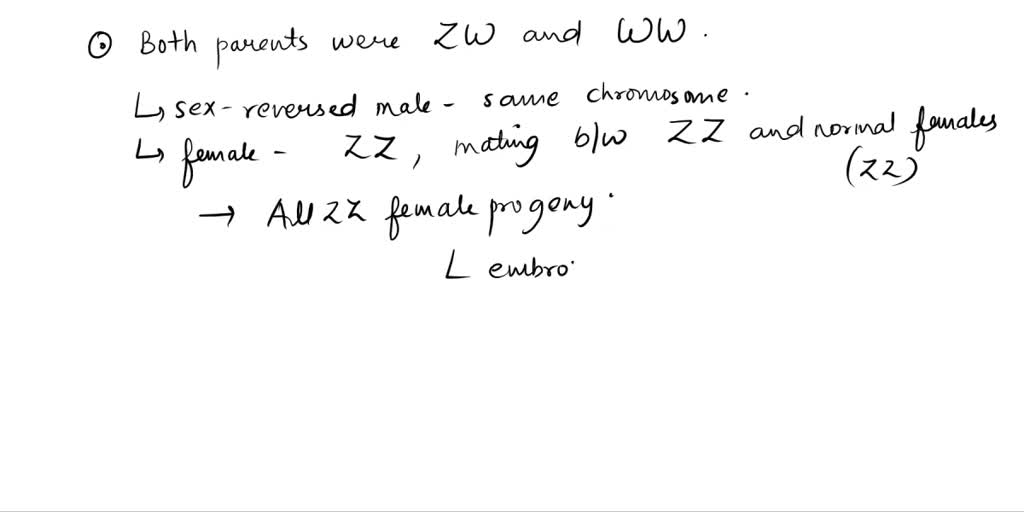 ⊙ Both parents were ZW and WW.
↳ sex-reversed male - same chromosome.
↳ female - ZZ, mating b/w ZZ and normal females
(ZZ)
→ All ZZ female progeny.
L embro